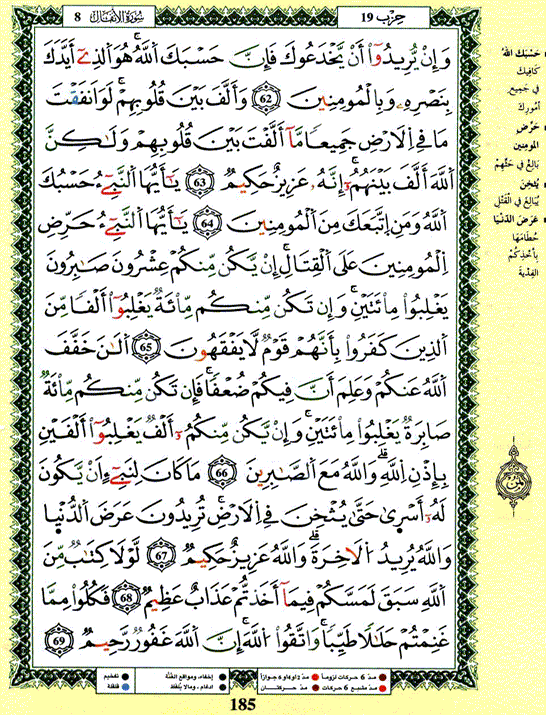 حِزْب 19
سُورَةُ الْأَنْفَال 8
وَإِنْ يُّرِيدُوٓاْ أَنْ يَّخْدَعُوكَ فَإِنَّ حَسْبَكَ اَللَّهُ هُوَ اَلذِےٓ أَيَّدَكَ
بِنَصْرِهِۦ وَبِالْمُومِنِينَ 62 وَأَلَّفَ بَيْنَ قُلُوبِهِمْ لَوَ اَنفَقْتَ
مَا فِے اِلَارْضِ جَمِيعاً مَّآ أَلَّفْتَ بَيْنَ قُلُوبِهِمْ وَلَٰكِنَّ
اَللَّهَ أَلَّفَ بَيْنَهُمُۥٓ إِنَّهُۥ عَزِيزٌ حَكِيمٌ 63 يَٰٓأَيُّهَا اَلنَّبِےٓءُ حَسْبُكَ
اَللَّهُ وَمَنِ اِتَّبَعَكَ مِنَ اَلْمُومِنِينَ 64 يَٰٓأَيُّهَا اَلنَّبِےٓءُ حَرِّضِ
اِلْمُومِنِينَ عَلَى اَلْقِتَالِ إِنْ يَّكُن مِّنكُمْ عِشْرُونَ صَٰبِرُونَ
يَغْلِبُواْ مِاْئَتَيْنِ وَإِن تَكُن مِّنكُم مِّاْئَةٌ يَغْلِبُوٓاْ أَلْفاً مِّنَ
اَلذِينَ كَفَرُواْ بِأَنَّهُمْ قَوْمٌ لَّا يَفْقَهُونَ 65 اَلَٰنَ خَفَّفَ
اَللَّهُ عَنكُمْ وَعَلِمَ أَنَّ فِيكُمْ ضُعْفاً فَإِن تَكُن مِّنكُم مِّاْئَةٌ
صَابِرَةٌ يَغْلِبُواْ مِاْئَتَيْنِ وَإِنْ يَّكُن مِّنكُمُۥٓ أَلْفٌ يَغْلِبُوٓاْ أَلْفَيْنِ
بِإِذْنِ اِللَّهِ وَاللَّهُ مَعَ اَلصَّٰبِرِينَ 66 مَا كَانَ لِنَبِےٓءٍ اَنْ يَّكُونَ
لَهُۥٓ أَسْرىٰ حَتَّىٰ يُثْخِنَ فِے اِلَارْضِ تُرِيدُونَ عَرَضَ اَلدُّنْيا
وَاللَّهُ يُرِيدُ اُلَاخِرَةَ وَاللَّهُ عَزِيزٌ حَكِيمٌ 67 لَّوْلَا كِتَٰبٌ مِّنَ
اَللَّهِ سَبَقَ لَمَسَّكُمْ فِيمَآ أَخَذتُّمْ عَذَابٌ عَظِيمٌ 68 فَكُلُواْ مِمَّا
غَنِمْتُمْ حَلَٰلاً طَيِّباً وَاتَّقُواْ اُللَّهَ إِنَّ اَللَّهَ غَفُورٌ رَّحِيمٌ 69
حَسْبَكَ اللهُ
كَافِيكَ
فِي جَمِيعِ
أُمُورِكَ
حَرِّضِ
المُومِنِينَ
بَالِغْ فِي حَثِّهِمْ
يُثْخِنَ
يُبَالِغَ فِي الْقَتْلِ
عَرَضَ الدُّنْيَا
حُطَامَهَا
بِأَخْذِكُمُ
الفِدْيَةَ
ثمن
مدّ 6 حركات لزوماً
مدّ 2 أو 4 أو 6 جوازاً
إخفاء، ومواقع الغنّة
تفخيم
مدّ مشبع 6 حركات
مدّ حركتان
إدغام، وما لا يُلفظ
قلقلة
185